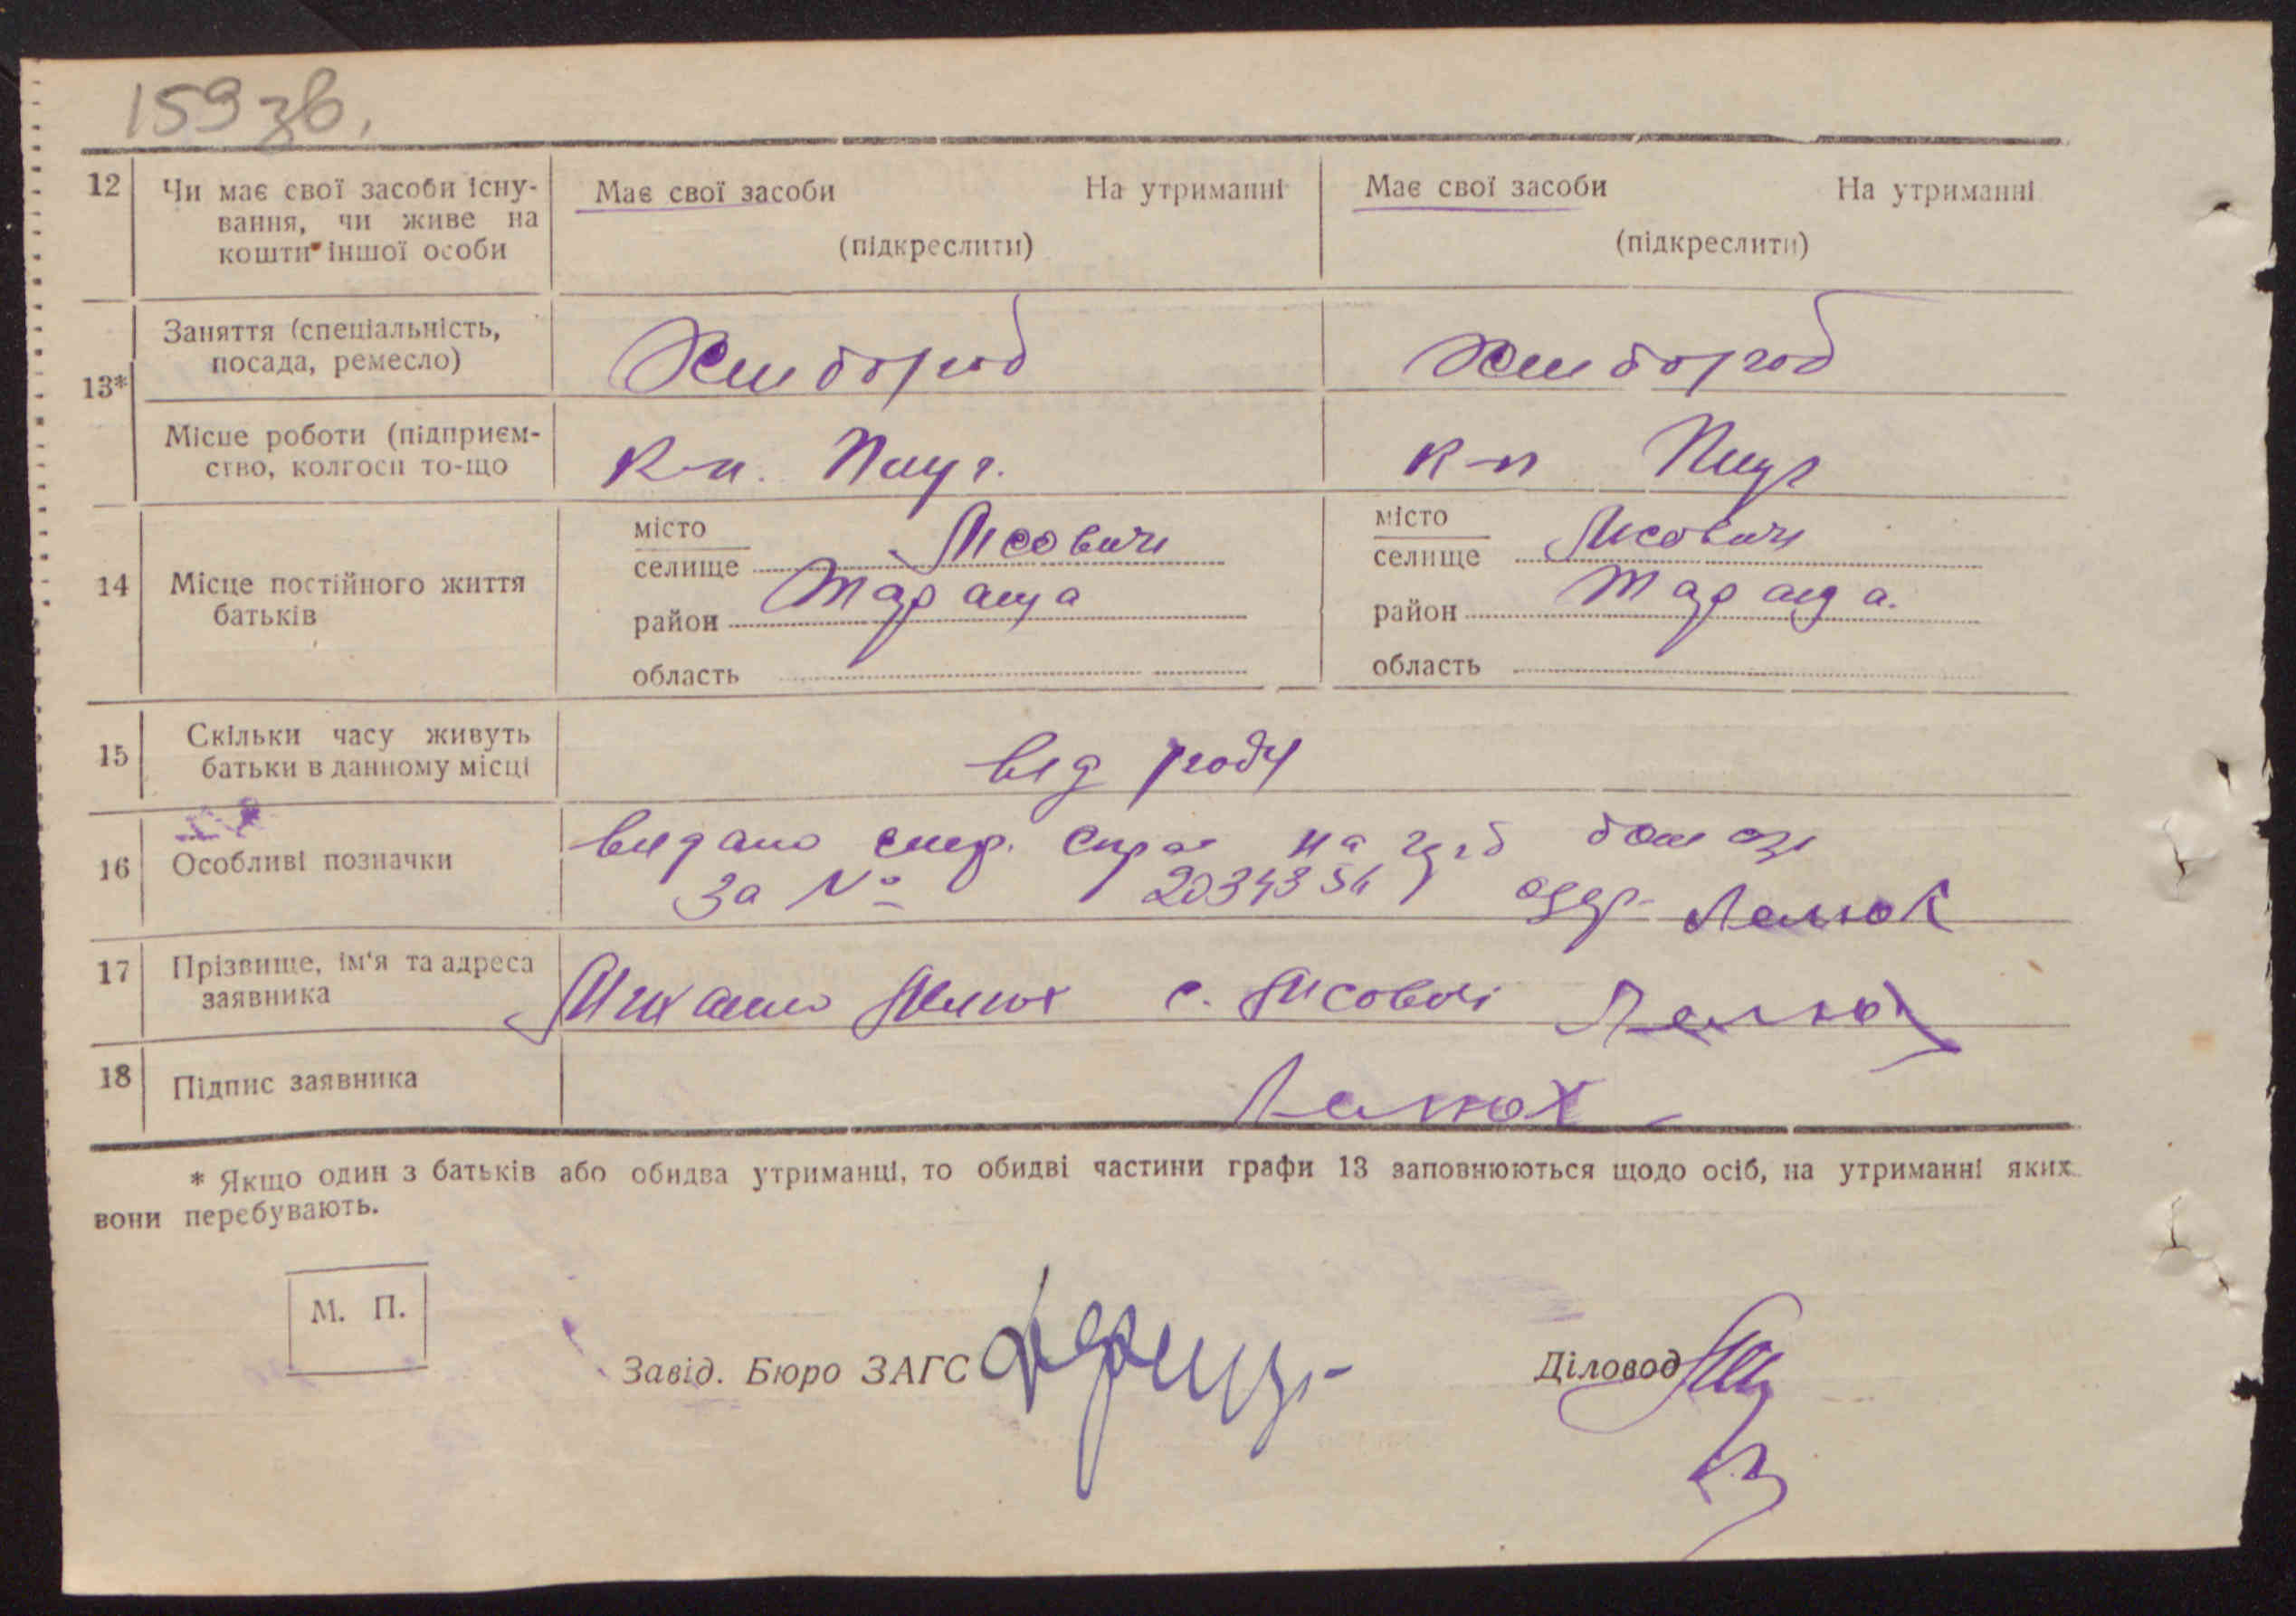 159 зв.
12 Чи має свої засоби існу- Має свої засоби На утриманні Має свої засоби На утриманні
вання, чи живе на
кошти іншої особи (підкреслити) (підкреслити)
Заняття (спеціальність, Хлибороб Хлибороб
посада, ремесло)
13*
Місце роботи (підприєм- К-п. Плуг. К-п Плуг
ство, колгосп то-що
14 Місце постійного життя
батьків
місто
селище Лисовичи
район Тараща
область
місто
селище Лисовичи
район Тараща.
область
15 Скільки часу живуть
батьки в данному місці від роду
16 Особливі позначки видано на
за № одер. Малюк
17 Прізвище, ім'я та адреса
заявника с. Лисовичі
18 Підпис заявника
* Якщо один з батьків або обидва утриманці, то обидві частини графи 13 заповнюються щодо осіб, на утриманні яких
вони перебувають.
М. П.
Завід. Бюро ЗАГС Діловод